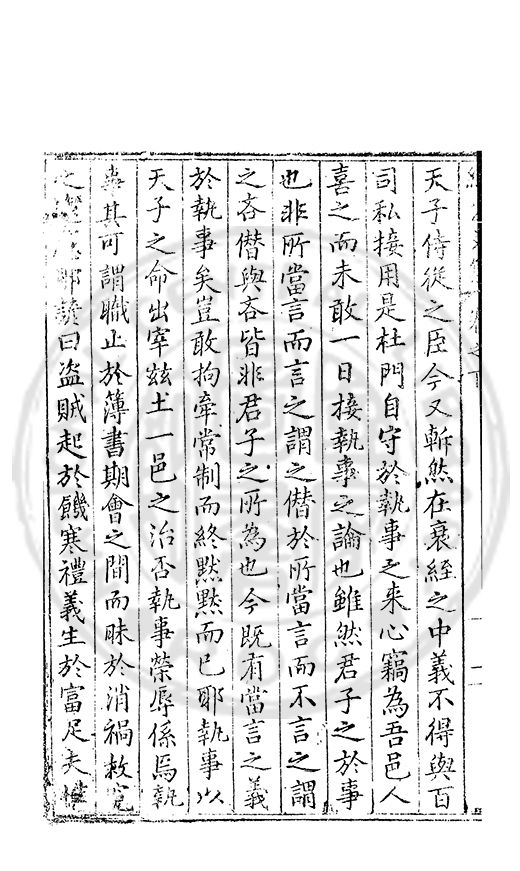 天子侍從之臣今又斬然在衰絰之中義不得與百
司私接用是杜門自守於執事之來心竊為吾邑人
喜之而未敢一日接執事之論也雖然君子之於事
也非所當言而言之謂之僭於所當言而不言之謂
之吝僭與吝皆非君子之所為也今既有當言之義
於執事矣豈敢拘牽常制而終默默而已耶執事以
天子之命出宰兹土一邑之治否執事榮辱係焉執
事其可謂職止於薄書期會之間而昧於消禍救寃
之 耶 曰盜賊起於饑寒禮義生於富足夫